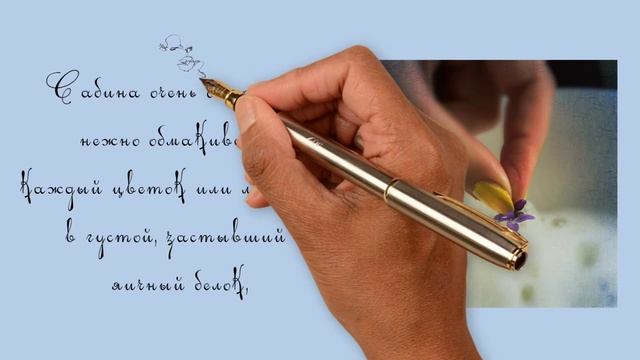 Сабина очень
нежно
каждый цветок или
в густой, застывший
яичный белок,